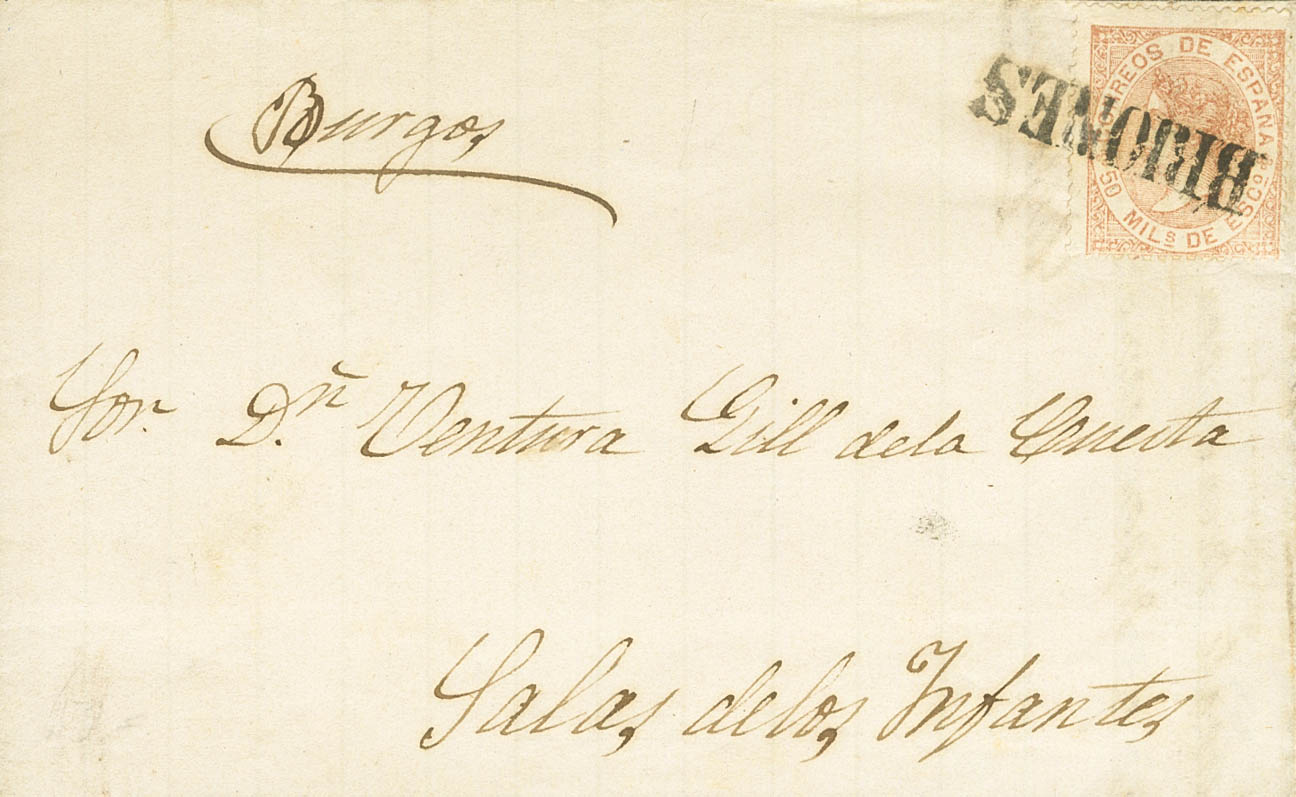 Burgos
CORREOS DE ESPAÑA
50 MILS DE ESCO
BRIONES
Sor. Dn. Ventura Gill dela Cuesta
Salas delos Infantes